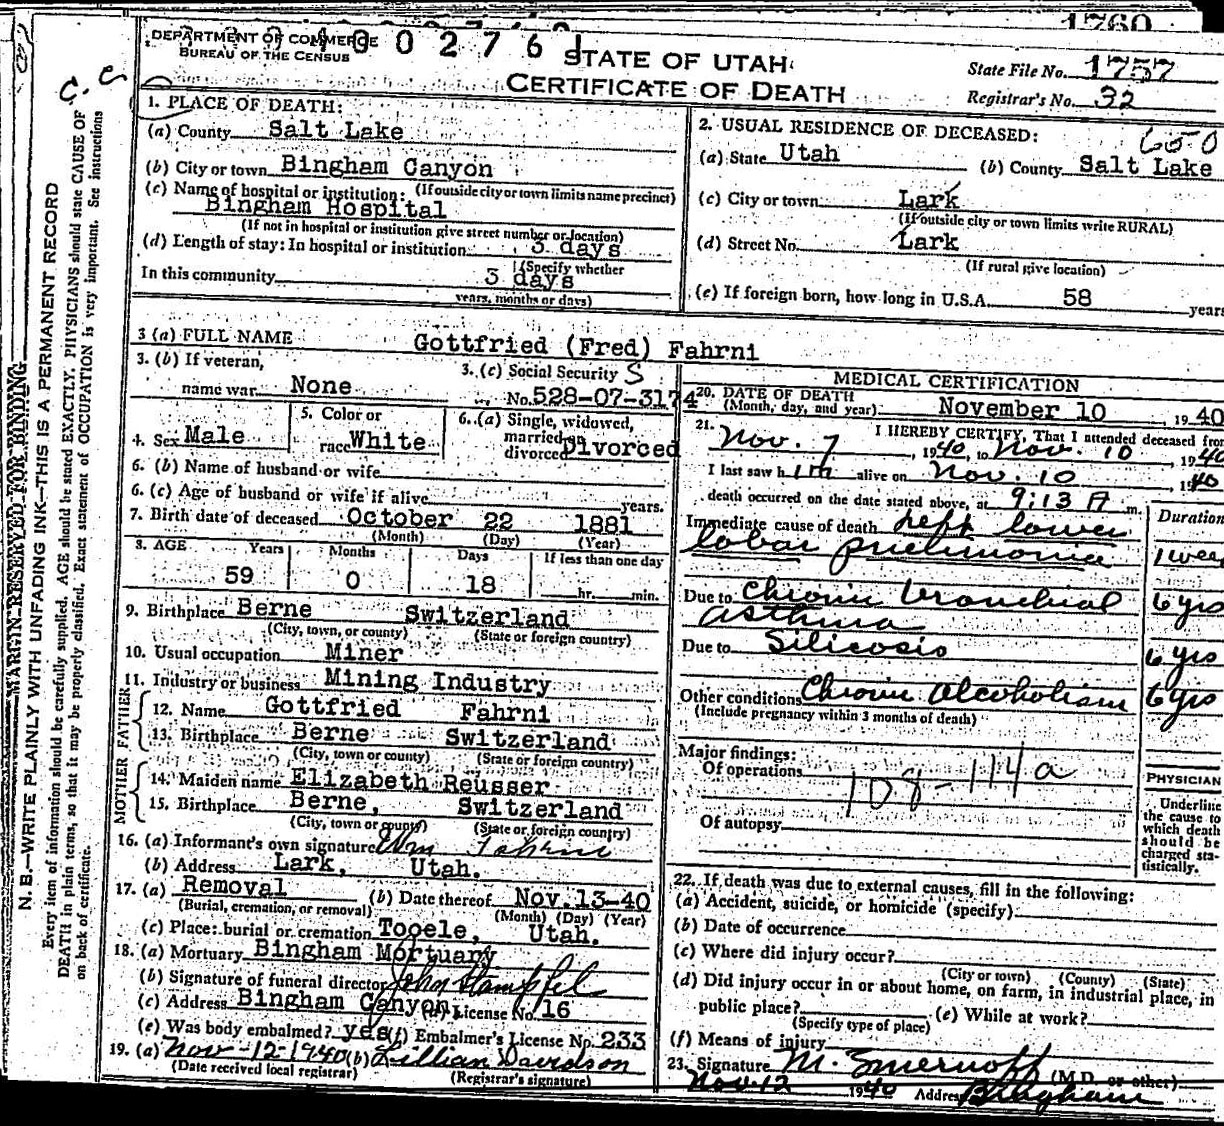 1760
DEPARTMENT OF COMMERCE
BUREAU OF THE CENSUS
4 0 0 2 7 6 1
STATE OF UTAH
CERTIFICATE OF DEATH
State File No. 1757
Registrar's No. 32
C. C
MARGIN RESERVED FOR BINDING
N. B.—WRITE PLAINLY WITH UNFADING INK—THIS IS A PERMANENT RECORD
Every item of information should be carefully supplied. AGE should be stated EXACTLY. PHYSICIANS should state CAUSE OF
DEATH in plain terms, so that it may be properly classified. Exact statement of OCCUPATION is very important. See instructions
on back of certificate.
1. PLACE OF DEATH:
(a) County Salt Lake
(b) City or town Bingham Canyon
(c) Name of hospital or institution: (If outside city or town limits name precinct)
Bingham Hospital
(If not in hospital or institution give street number or location)
(d) Length of stay: In hospital or institution 3 days
(Specify whether
In this community 3 days
years, months or days)
2. USUAL RESIDENCE OF DECEASED:
(a) State Utah (b) County Salt Lake
(c) City or town Lark
(If outside city or town limits write RURAL)
(d) Street No. Lark
(If rural give location)
(e) If foreign born, how long in U.S.A. 58 years
3 (a) FULL NAME Gottfried (Fred) Fahrni
3. (b) If veteran,
name war None
3. (c) Social Security
No. 528-07-3174
4. Sex Male
5. Color or
race White
6. (a) Single, widowed,
married or
divorced Divorced
6. (b) Name of husband or wife
6. (c) Age of husband or wife if alive years.
7. Birth date of deceased October 22 1881
(Month) (Day) (Year)
8. AGE Years Months Days If less than one day
59 0 18 hr. min.
9. Birthplace Berne Switzerland
(City, town, or county) (State or foreign country)
10. Usual occupation Miner
11. Industry or business Mining Industry
FATHER
12. Name Gottfried Fahrni
13. Birthplace Berne Switzerland
(City, town or county) (State or foreign country)
MOTHER
14. Maiden name Elizabeth Reusser
15. Birthplace Berne, Switzerland
(City, town or county) (State or foreign country)
16. (a) Informant's own signature Wm Fahrni
(b) Address Lark, Utah.
17. (a) Removal (b) Date thereof Nov. 13-40
(Burial, cremation, or removal) (Month) (Day) (Year)
(c) Place: burial or cremation Tooele, Utah.
18. (a) Mortuary Bingham Mortuary
(b) Signature of funeral director John Stampfel
(c) Address Bingham Canyon (d) License No. 16
(e) Was body embalmed? yes (f) Embalmer's License No. 233
19. (a) Nov-12-1940 (b) Lillian Davidson
(Date received local registrar) (Registrar's signature)
MEDICAL CERTIFICATION
20. DATE OF DEATH
(Month, day, and year) November 10 1940
21. I HEREBY CERTIFY, That I attended deceased from
Nov. 7, 1940, to Nov. 10, 1940
I last saw him alive on Nov. 10, 1940
death occurred on the date stated above, at 9:13 A m.
Duration
Immediate cause of death Left lower
lobar pneumonia 1 week
Due to Chronic bronchial 6 yrs
asthma
Due to Silicosis 6 yrs
Other conditions Chronic alcoholism 6 yrs
(Include pregnancy within 3 months of death)
Major findings:
Of operations
108-114a
Of autopsy
PHYSICIAN
Underline
the cause to
which death
should be
charged sta-
tistically.
22. If death was due to external causes, fill in the following:
(a) Accident, suicide, or homicide (specify)
(b) Date of occurrence
(c) Where did injury occur?
(City or town) (County) (State)
(d) Did injury occur in or about home, on farm, in industrial place, in
public place? (e) While at work?
(Specify type of place)
(f) Means of injury
23. Signature M. Smernoff (M.D. or other)
Nov. 12 1940 Address Bingham